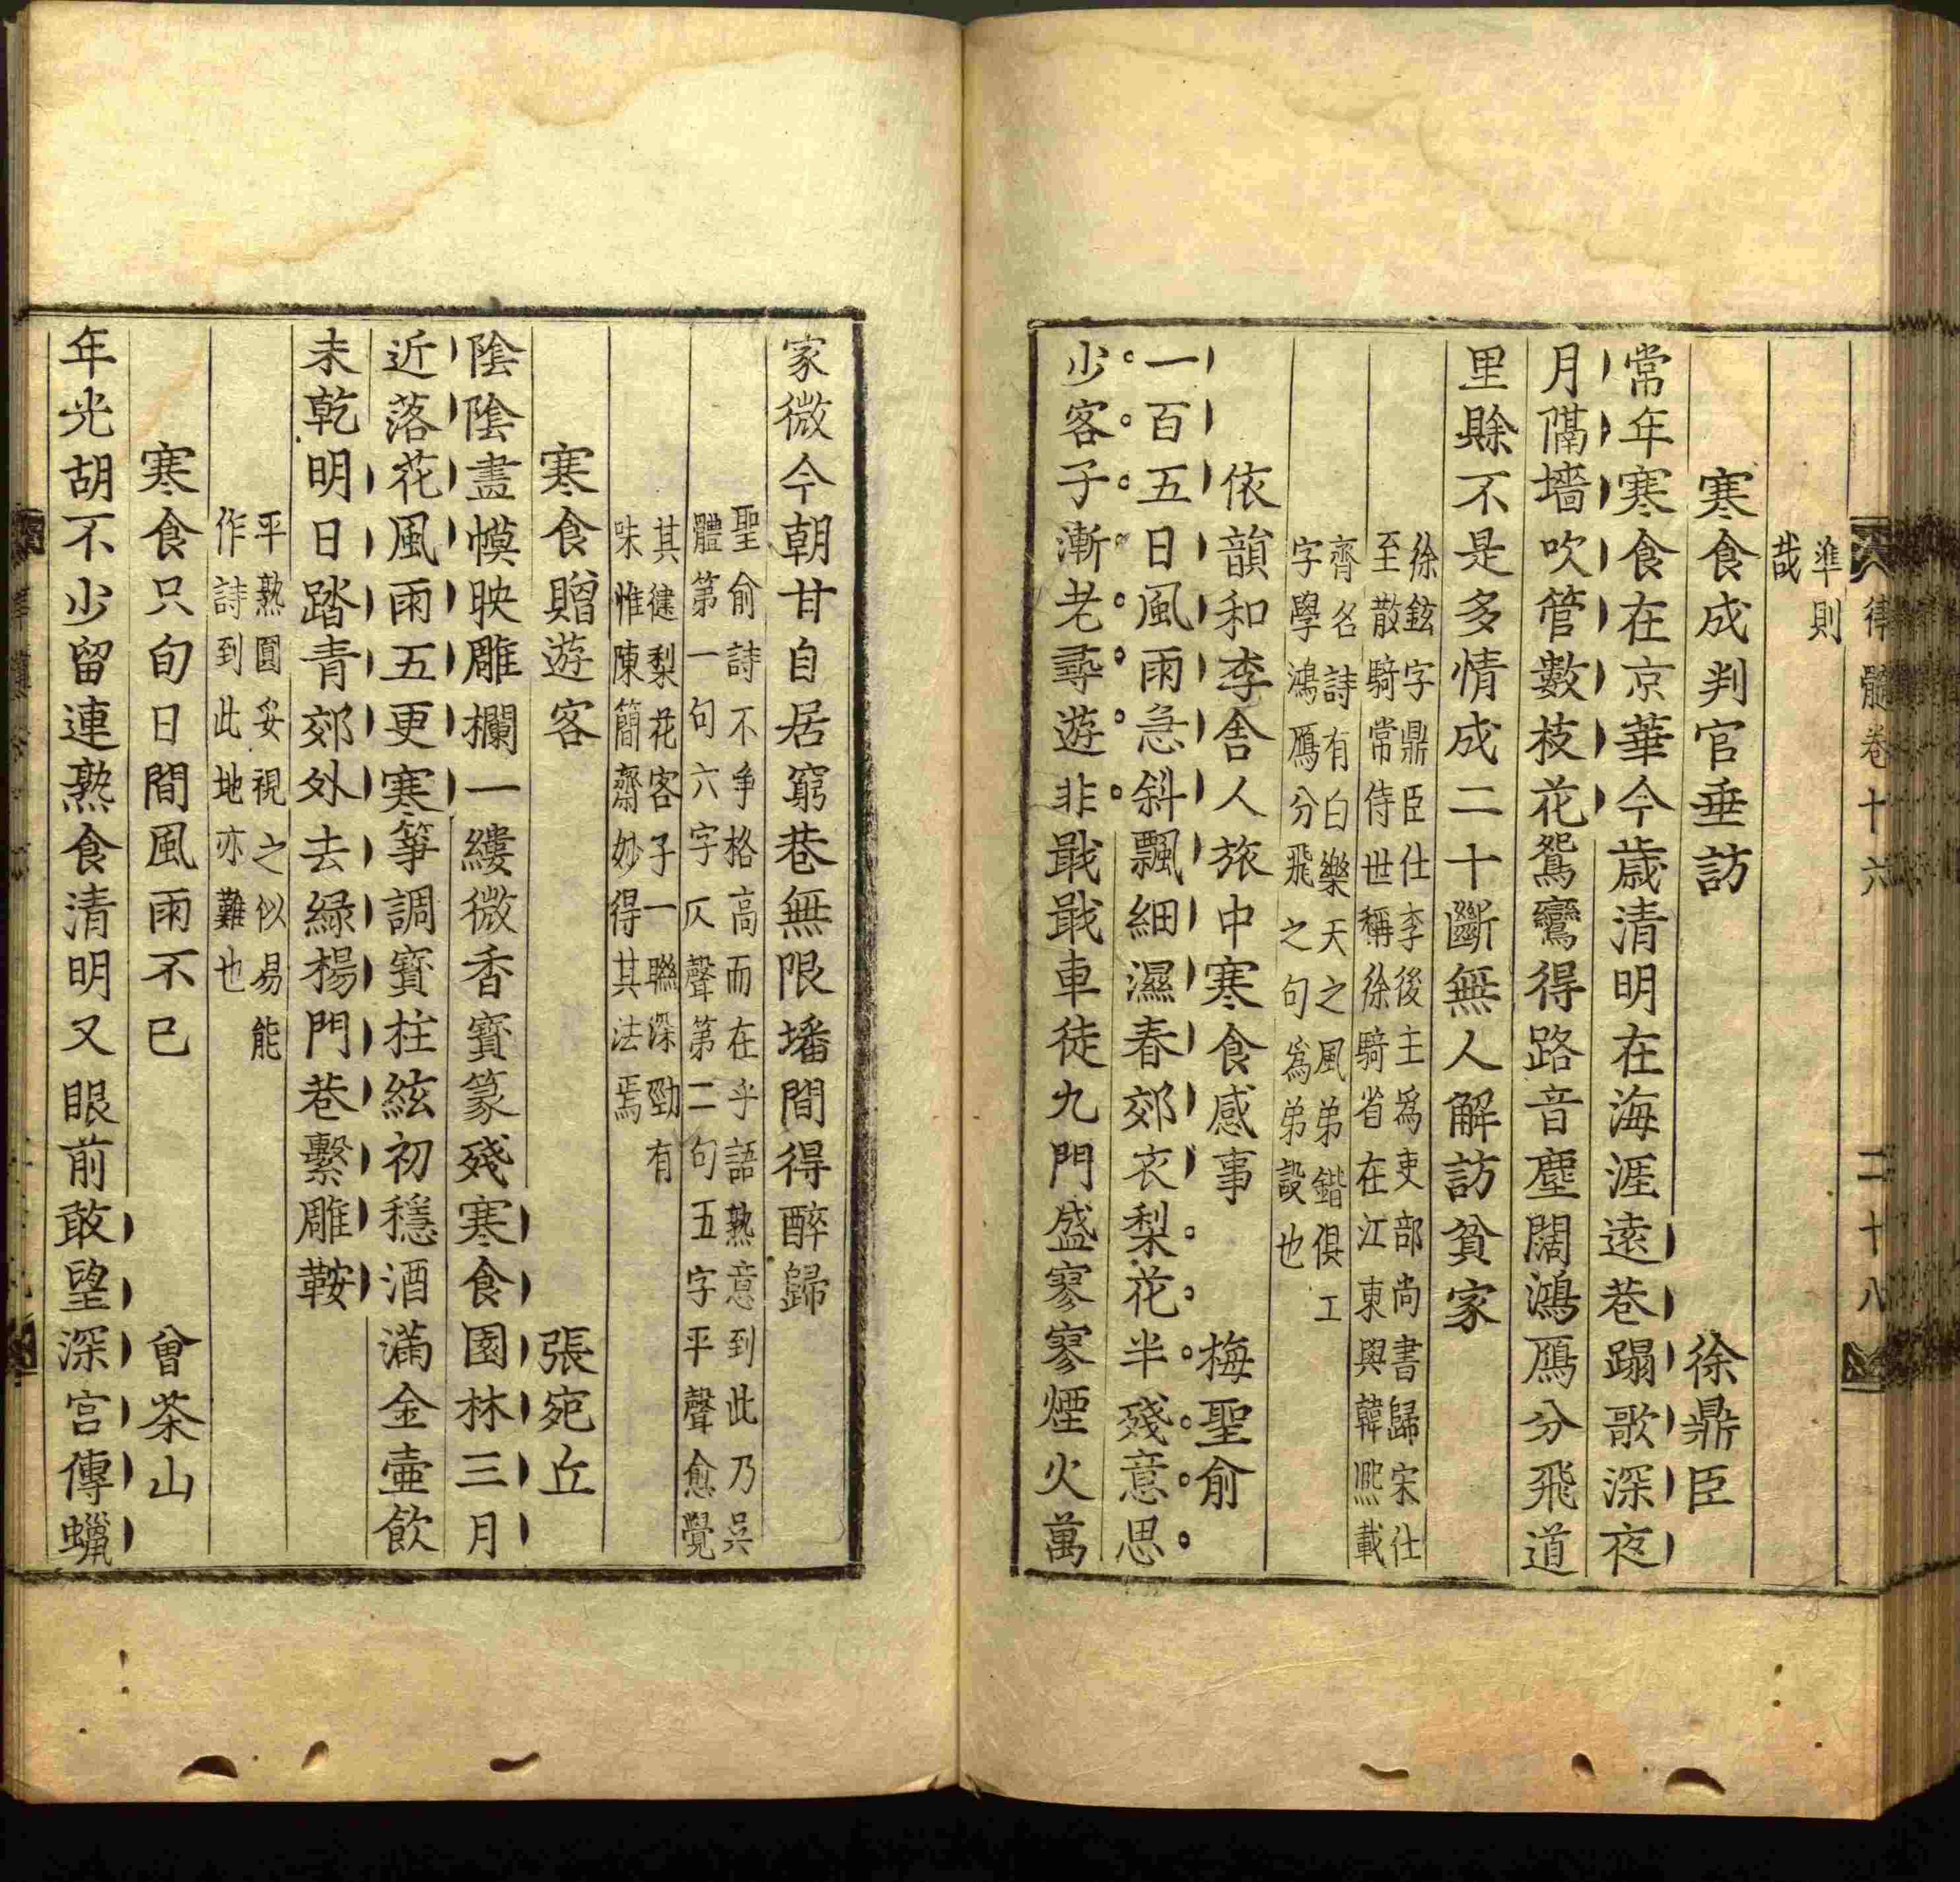 律髓卷十六 二十八
準則
哉
寒食成判官垂訪 徐鼎臣
常年寒食在京華今歳清明在海涯遠巷蹋歌深夜
月隔墻吹管數枝花鴛鸞得路音塵闊鴻鴈分飛道
里賖不是多情成二十斷無人解訪貧家
徐鉉字鼎臣仕李後主爲吏部尚書歸宋仕
至散騎常侍世稱徐騎省在江東與韓熈載
齊名詩有白樂天之風弟鍇俱工
字學鴻鴈分飛之句爲弟設也
依韻和李舍人旅中寒食感事 梅聖俞
一百五日風雨急斜飄細濕春郊衣梨花半殘意思
少客子漸老尋遊非戢戢車徒九門盛寥寥煙火萬
家微今朝甘自居窮巷無限墦間得醉歸
聖俞詩不争格高而在乎語熟意到此乃吳
體第一句六字仄聲第二句五字平聲愈覺
其健梨花客子一聯深勁有
味惟陳簡齋妙得其法焉
寒食贈遊客 張宛丘
陰陰畫幙映雕欄一縷微香寶篆殘寒食園林三月
近落花風雨五更寒箏調寶柱絃初穩酒滿金壷飲
未乾明日踏青郊外去緑楊門巷繫雕鞍
平熟圓妥視之似易能
作詩到此地亦難也
寒食只旬日間風雨不已 曾茶山
年光胡不少留連熟食清明又眼前敢望深宫傳蠟